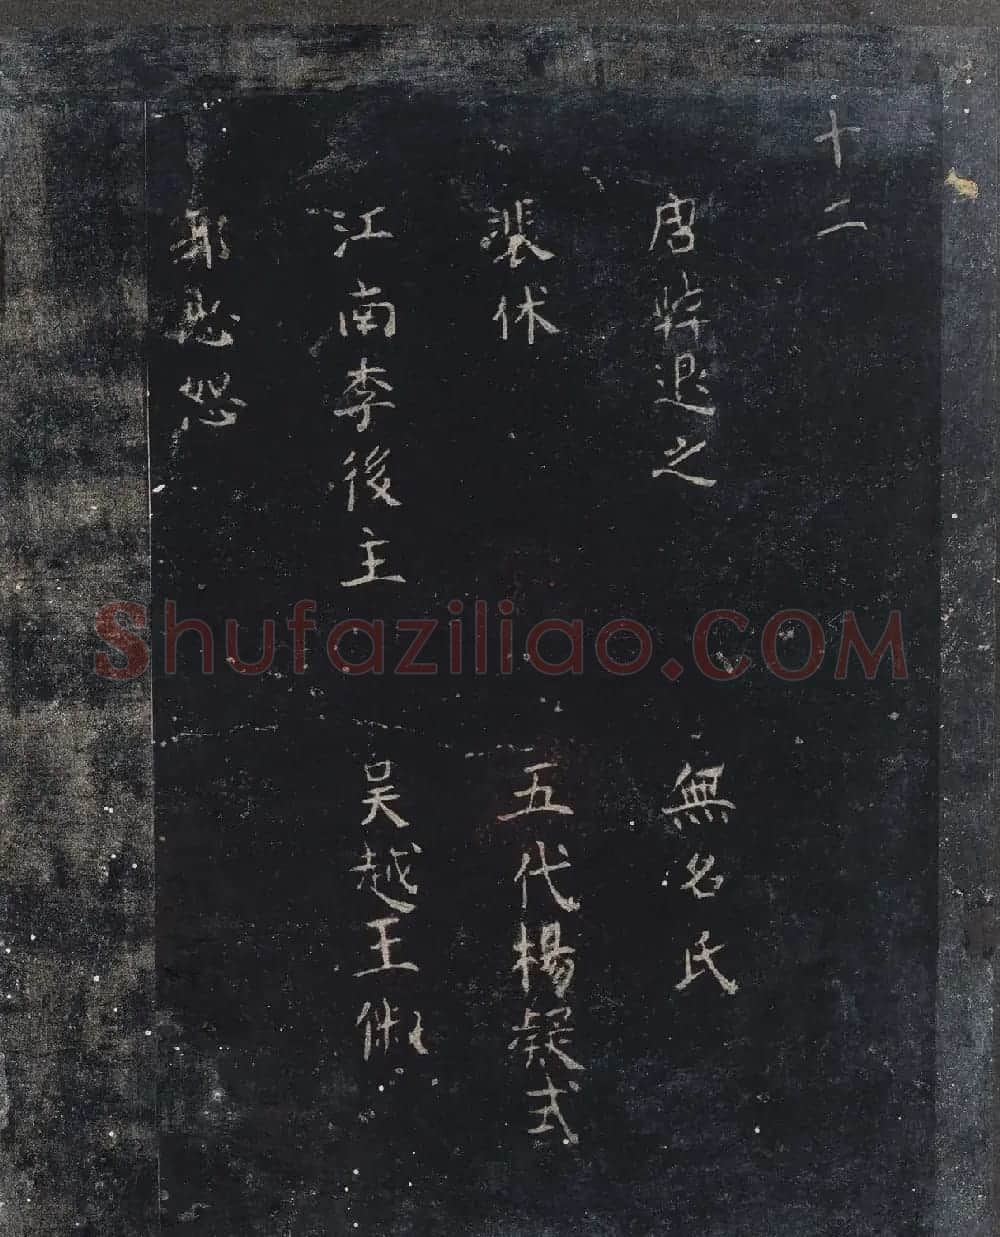 十二
唐韓退之 無名氏
裴休 五代楊凝式
江南李後主 吴越王俶
郭忠恕
Shufaziliao.COM